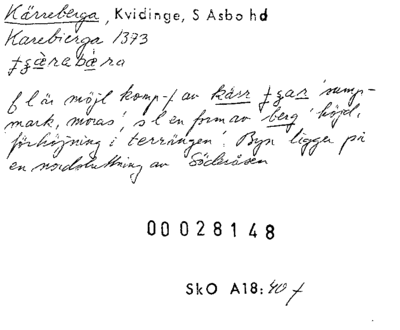 Kärreberga, Kvidinge, S Asbo hd
Karebierga 1373
ɟgàrabàra
f l är möjl komp-f av kärr ɟgar 'sump-
mark, moras', s l en form av berg 'höjd,
förhöjning i terrängen'. Byn ligger på
en nordsluttning av Söderåsen
00028148
SkO A18:40 f